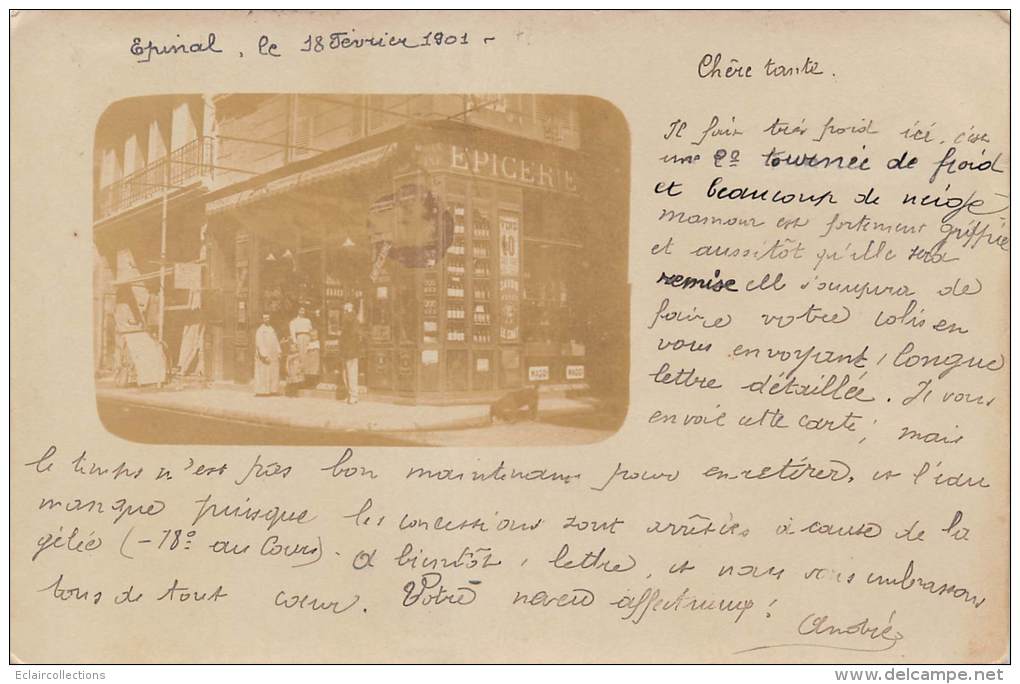 Epinal, le 18 Février 1901 -
Chère tante.
Il fait très froid ici, c'est
une 2º tournée de froid
et beaucoup de neige
maman est fortement grippée
et aussitôt qu'elle sera
remise elle s'occupera de
faire votre colis en
vous envoyant, longue
lettre détaillée. Je vous
envoie cette carte, mais
le temps n'est pas bon maintenant pour en retirer, et l'eau
manque puisque les concessions sont arrêtées à cause de la
gêlée (-18º au Cours). A bientôt, lettre, et nous vous embrassons
tous de tout cœur. Votre neveu affectueux!
André
EPICERIE
40
SAVON
MAGGI
MAGGI
Eclaircollections
www.delcampe.net